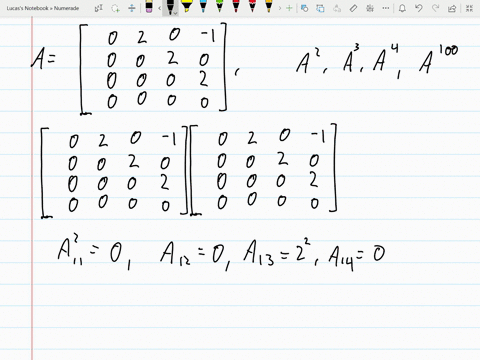 Lucas's Notebook » Numerade
A = [ 0 2 0 -1
0 0 2 0
0 0 0 2
0 0 0 0 ] , A², A³, A⁴, A¹⁰⁰
[ 0 2 0 -1 ] [ 0 2 0 -1 ]
[ 0 0 2 0 ] [ 0 0 2 0 ]
[ 0 0 0 2 ] [ 0 0 0 2 ]
[ 0 0 0 0 ] [ 0 0 0 0 ]
A²₁₁ = 0, A₁₂ = 0, A₁₃ = 2², A₁₄ = 0